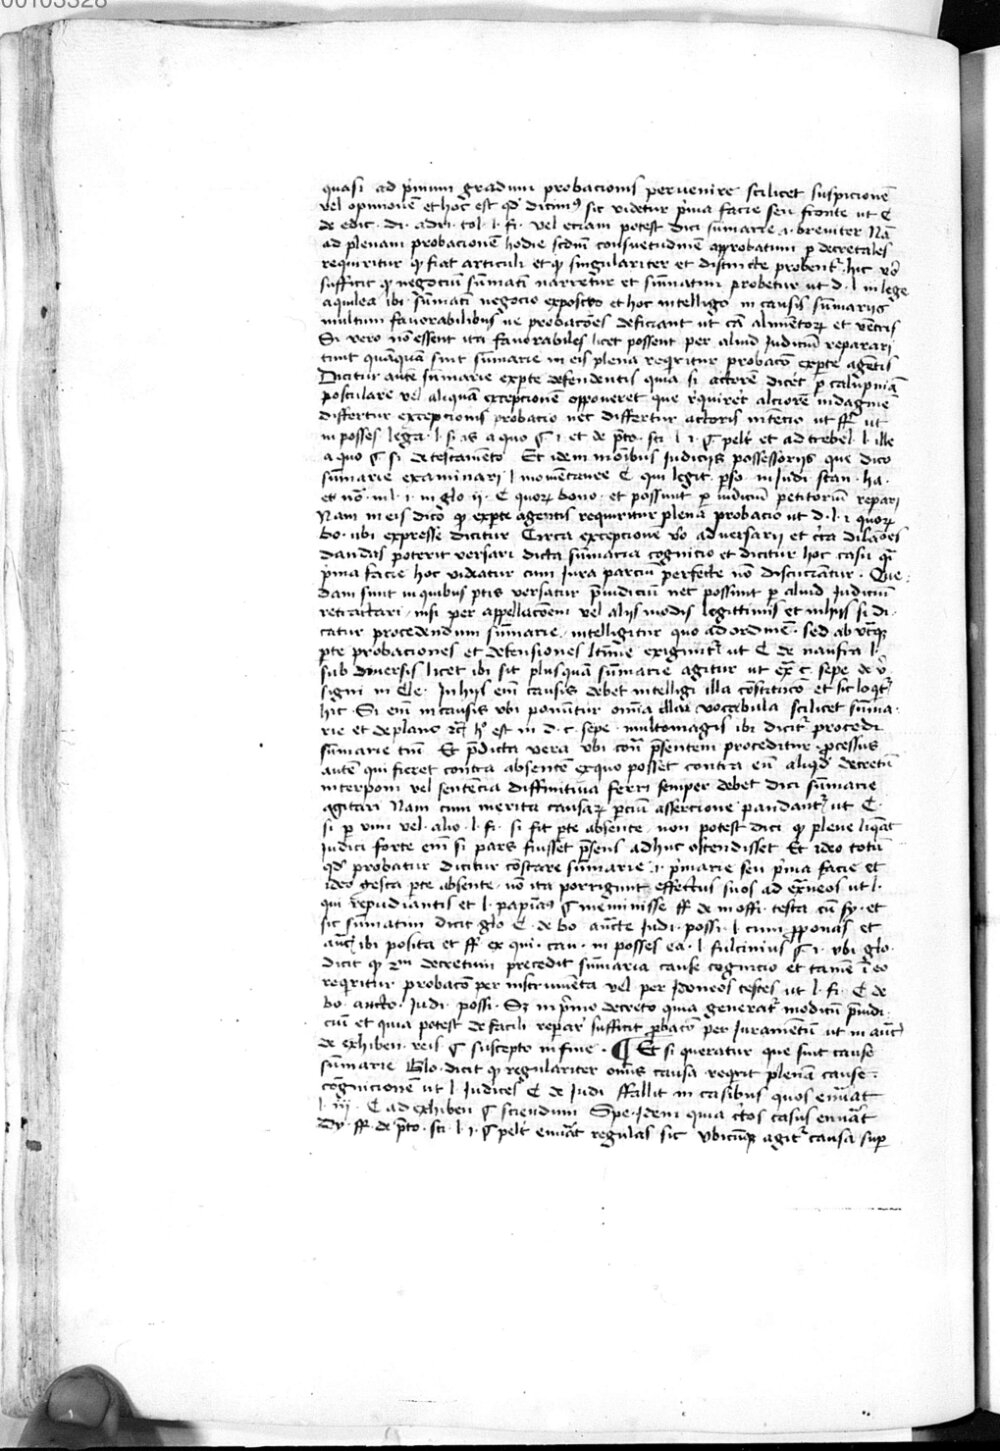 00103328
quasi ad p̄mum gradum probacionis pervenire scilicet suspicionē
vel opinionē et hoc est qd̛ dicimꝰ sic videtur p̄ma facie seu fronte ut C
de edic. di. adri. tol. l. fi. vel etiam potest dici sūmarie .i. breviter Nā
ad plenam probacionē hodie scdm̄ consuetudinē approbatum p decretales
requiritur qꝫ fiat articuli et qꝫ singulariter et distincte probentᷣ. hic vō
sufficit qꝫ negociū sūmati narretur et sūmatim probetur ut d. l. in lege
aquilea ibi sūmati negocio exposito et hoc intelligo in causis sūmariis
multum favorabilibus ne probacōes deficiant ut cā alimētoꝝ et vētris
Si vero nō essent ita favorabiles licet possent per aliud Judiciū reparari
tunc quāquā sint sūmarie in eis plena reqritur probacō exparte agētis
Dicitur autē sūmarie exparte defendentis quia si actorē dicet p calūpniā
postulare vel aliquā excepcionē opponeret que rquiret alciorē indaginē
differtur excepcionis probacio nec differtur actoris intēcio ut ff ut
in posses lega. l. si is a quo § i et de p̄to. sti l i. § pelt et ad trebel. l. ille
a quo § si de testamēto Et idem in oībus Judiciis possessoriis que dico
sūmarie examinari l momētanee C qui legit. pso. in Judi stan. ha.
et nō. in l. i. in glo. ii. C quoꝝ bono. et possunt p iudiciū petitoriū repari
Nam in eis dico qꝫ exparte agentis requiritur plena probacio ut d. l. i quoꝝ
bo. ubi expresse dicitur Circa excepcionē vō adversarii et circa dilacōes
dandas poterit versari dicta sūmaria cognicio et dicitur hoc casu
p̄ma facie hoc videatur cum Jura parciū perfecte nō discuciantur. Que
dam sunt in quibus ptis versatur p̄iudiciū nec possunt p aliud Judiciū
retractari. nisi per appellacōem vel aliis modis legittimis et in hiis si di
catur procedendum sūmarie. intelligitur quo ad ordinē. sed ab utraqꝫ
pte probaciones et defensiones ltime exigūtᷣ ut C de naufra l.
sub diversis licet ibi sit plusquā sūmarie agitur ut ex̄ c. sepe de v̄.
signi in Cle. In hiis enī causis debet intelligi illa cōstitucō et sic loqtᷣ
hic. Si enī in causis ubi ponūtur om̄a illa vocabula scilicet sūma
rie et de plano etc. hoc est in d. c. sepe. multomagis ibi dicitᷣ procedi
sūmarie tm̄. Et p̄dicta vera ubi contra p̄sentem proceditur. processus
autē qui fieret contra absentē exquo posset contra eū aliqd̛ decretū
interponi vel sentencia diffinitiva ferri semper debet dici sūmarie
agitari Nam cum merita causaꝝ parciū assercione pandantᷣ ut C.
si p vim vel. alio. l. fi. si fit pte absente. non potest dici qꝫ plene liqeat
Judici forte eni si pars fuisset p̄sens adhuc ostendisset Et ideo totū
qd̛ probatur dicitur cōstare sūmarie .i. p̄marie seu p̄ma facie et
ideo gesta pte absente. nō ita porrigunt effectus suos ad exneos ut l.
qui repudiantis et l. papianꝰ § meminisse ff de inoffi. testa cū sy. et
sic sūmatim dicit glo C. de bo auct̄e Judi. possi. l. cum pponas et
auct̄ ibi posita et ff ex qui. cau. in posses ea. l fulcinius § i. ubi glo.
dicit qꝫ 2m decretum precedit sūmaria cause cognicio et tamē in eo
reqritur probacō per instrumēta vel per Idoneos testes ut l. fi. C de
bo. aucto. Judi. possi. Sꝫ in p̄mo decreto quia generatᷣ modicū p̄iudi
ciū et quia potest de facili repari sufficit pbacō per Juramētū ut in auct̄
de exhiben. reis § suscepto in fine. ¶ Et si queratur que sint cause
sūmarie Glo. dicit qꝫ regulariter omīs causa reqrit plenā cause
cognicionē ut l. Judices C de Judi ffallit in casibus quos enūat
l. iii. C ad exhiben § sciendum Spe. Idem quia ctos casus enūat
Dy. ff. de p̄to. sti. l i. § pelt enūat regulas sic Ubicūqꝫ agitᷣ causa sup